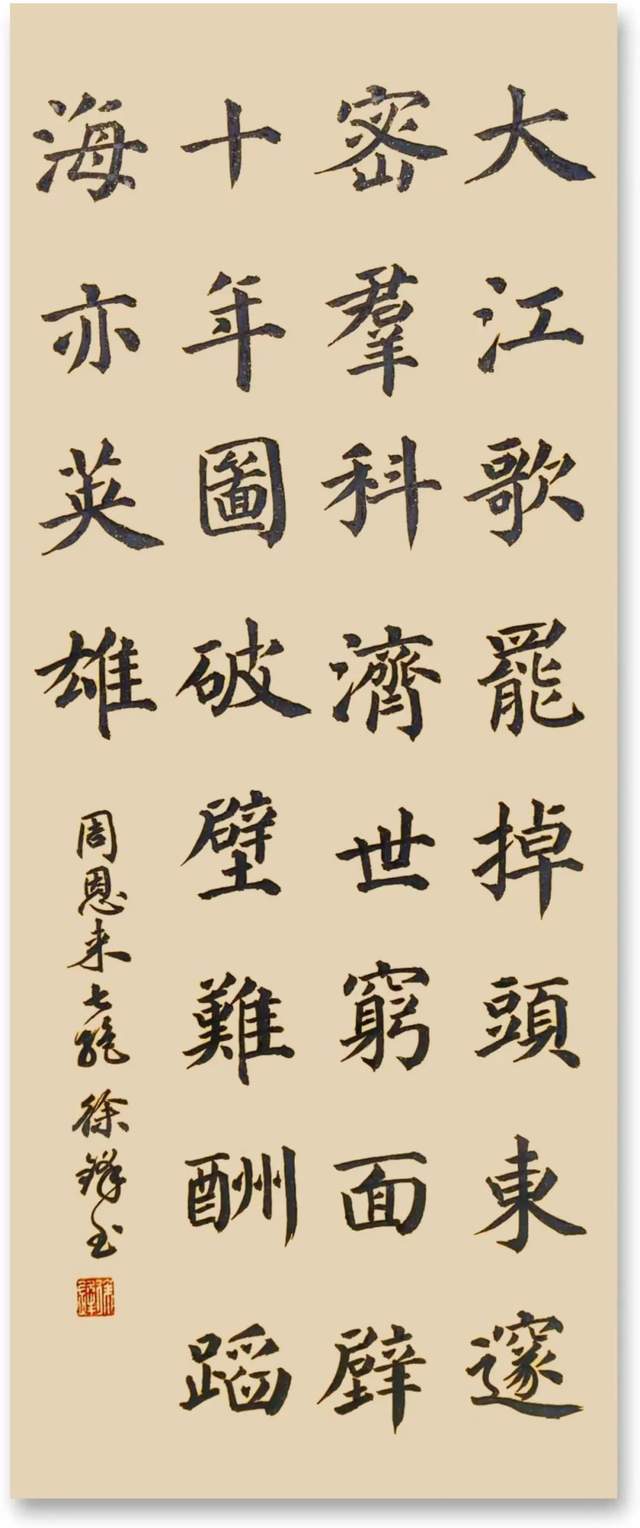 大江歌罷掉頭東邃
密羣科濟世窮面壁
十年圖破壁難酬蹈
海亦英雄
周恩来七絶徐鋒书